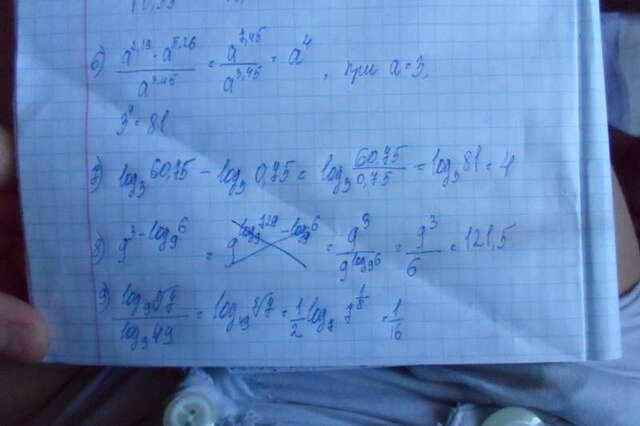 6) (a^2,19 · a^5,26)/(a^3,45) = a^7,45/a^3,45 = a^4, при a = 3,
3^4 = 81
7) log₃ 60,75 − log₃ 0,75 = log₃ 60,75/0,75 = log₃ 81 = 4
8) 9^(3 − log₉ 6) = = 9^3/9^(log₉ 6) = 9^3/6 = 121,5
9) log₉ ⁸√7 / log₉ 49 = log₄₉ ⁸√7 = 1/2 log₇ 7^(1/8) = 1/16